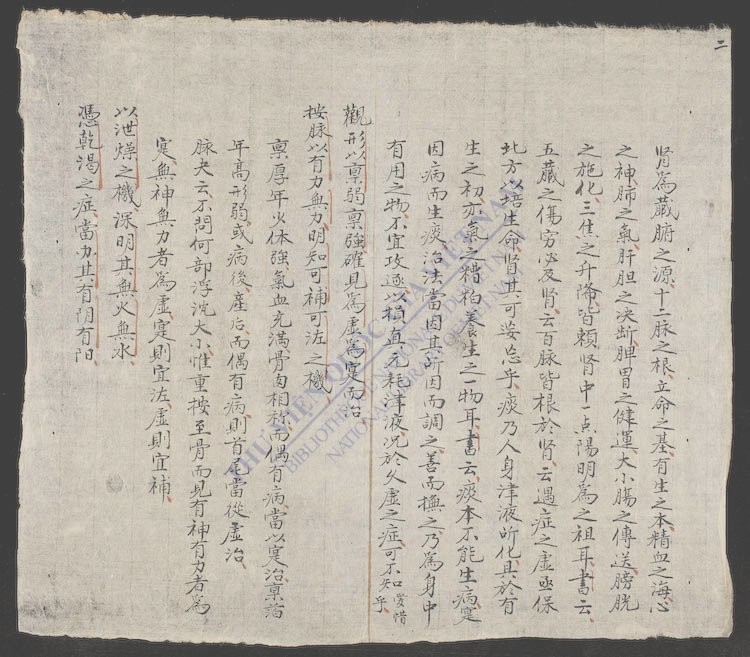 二
肾為臓腑之源、十二脉之根、立命之基、有生之本、精血之海、心
之神、肺之氣、肝胆之决断、脾胃之健運、大小腸之傳送、膀胱
之施化、三焦之升降、皆頼肾中一点陽明為之祖耳、書云、
五臓之傷、穷必及肾、云百脉皆根於肾、云遇症之虚、亟保
北方、以培生命、肾其可妄忘乎、痰乃人身津液所化、其於有
生之初、亦氣之糟粕、養生之一物耳、書云、痰本不能生病、寔
因病而生痰、治法當因其所因而調之、善而撫之、乃為身中
有用之物、不宜攻逐以損真元、耗津液、况於久虚之症、可不知愛惜乎、
觀形以禀弱禀強、確見為虚為寔而治
按脉以有力無力、明知可補可泻之機
禀厚年火体強、氣血充滿、骨肉相称、而偶有病、當以寔治、禀萡
年高形弱、或病後產后而偶有病、則首尾當從虚治
脉夬云、不問何部浮沉大小、惟重按至骨而見有神有力者為
寔、無神無力者為虚、寔則宜泻、虚則宜補、
以泄燥之機、深明其無火無水、
憑乾渴之症、當办其有阴有阳、
THƯ VIỆN QUỐC GIA VIỆT NAM
NATIONAL LIBRARY OF VIETNAM